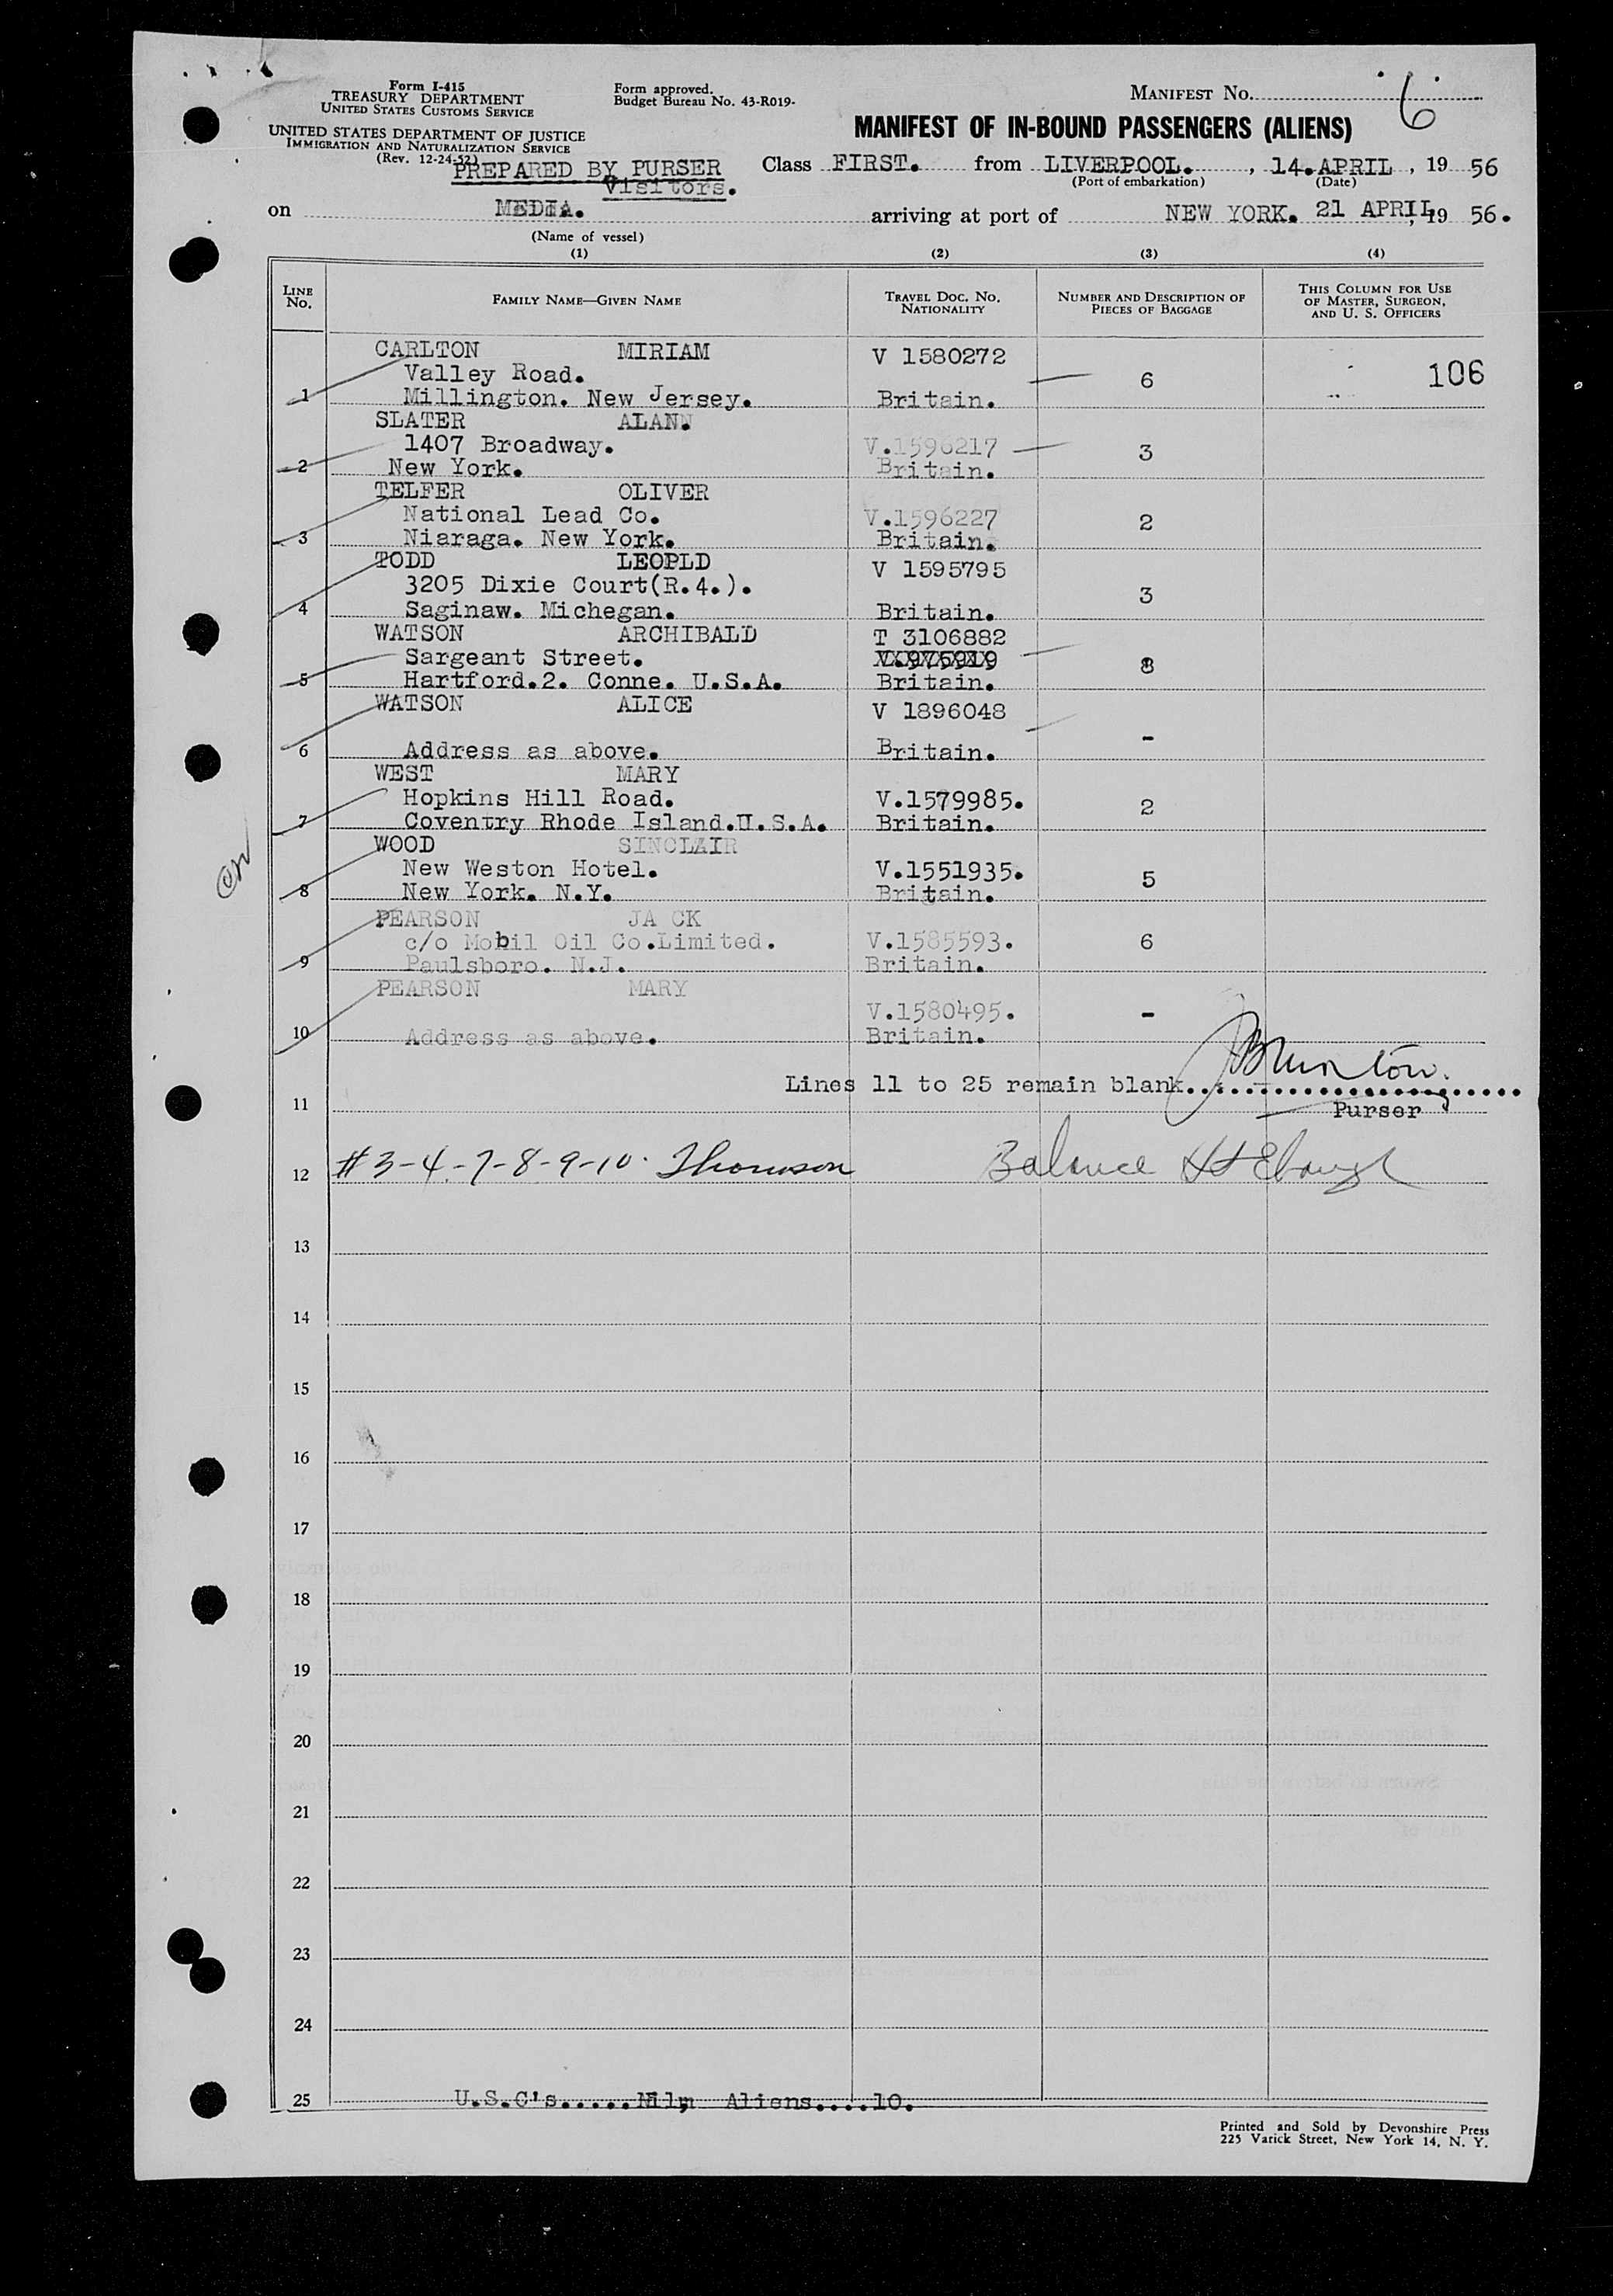 Form I-415
TREASURY DEPARTMENT
UNITED STATES CUSTOMS SERVICE
UNITED STATES DEPARTMENT OF JUSTICE
IMMIGRATION AND NATURALIZATION SERVICE
(Rev. 12-24-52)
Form approved.
Budget Bureau No. 43-R019-
MANIFEST No. 6
MANIFEST OF IN-BOUND PASSENGERS (ALIENS)
PREPARED BY PURSER
Visitors.
Class FIRST. from LIVERPOOL. , 14.APRIL , 19 56
(Port of embarkation) (Date)
on MEDIA. arriving at port of NEW YORK. 21 APRIL, 19 56.
(Name of vessel)
(1) (2) (3) (4)
LINE No. FAMILY NAME—GIVEN NAME TRAVEL DOC. NO. NATIONALITY NUMBER AND DESCRIPTION OF PIECES OF BAGGAGE THIS COLUMN FOR USE OF MASTER, SURGEON, AND U. S. OFFICERS
CARLTON MIRIAM V 1580272
Valley Road. 6 106
1 Millington. New Jersey. Britain.
SLATER ALAN.
1407 Broadway. V.1596217 3
2 New York. Britain.
TELFER OLIVER
National Lead Co. V.1596227 2
3 Niaraga. New York. Britain.
TODD LEOPLD V 1595795
3205 Dixie Court(R.4.). 3
4 Saginaw. Michegan. Britain.
WATSON ARCHIBALD T 3106882
Sargeant Street. V.975919 8
5 Hartford.2. Conne. U.S.A. Britain.
WATSON ALICE V 1896048
-
6 Address as above. Britain.
WEST MARY
Hopkins Hill Road. V.1579985. 2
7 Coventry Rhode Island.U.S.A. Britain.
WOOD SINCLAIR
New Weston Hotel. V.1551935. 5
8 New York. N.Y. Britain.
PEARSON JA CK
c/o Mobil Oil Co.Limited. V.1585593. 6
9 Paulsboro. N.J. Britain.
PEARSON MARY
V.1580495. -
10 Address as above. Britain.
Lines 11 to 25 remain blank....................
11 Purser
12 #3-4-7-8-9-10. Thomson Balance
13
14
15
16
17
18
19
20
21
22
23
24
25 U.S.C's.....Nil, Aliens....10.
Printed and Sold by Devonshire Press
225 Varick Street, New York 14, N. Y.